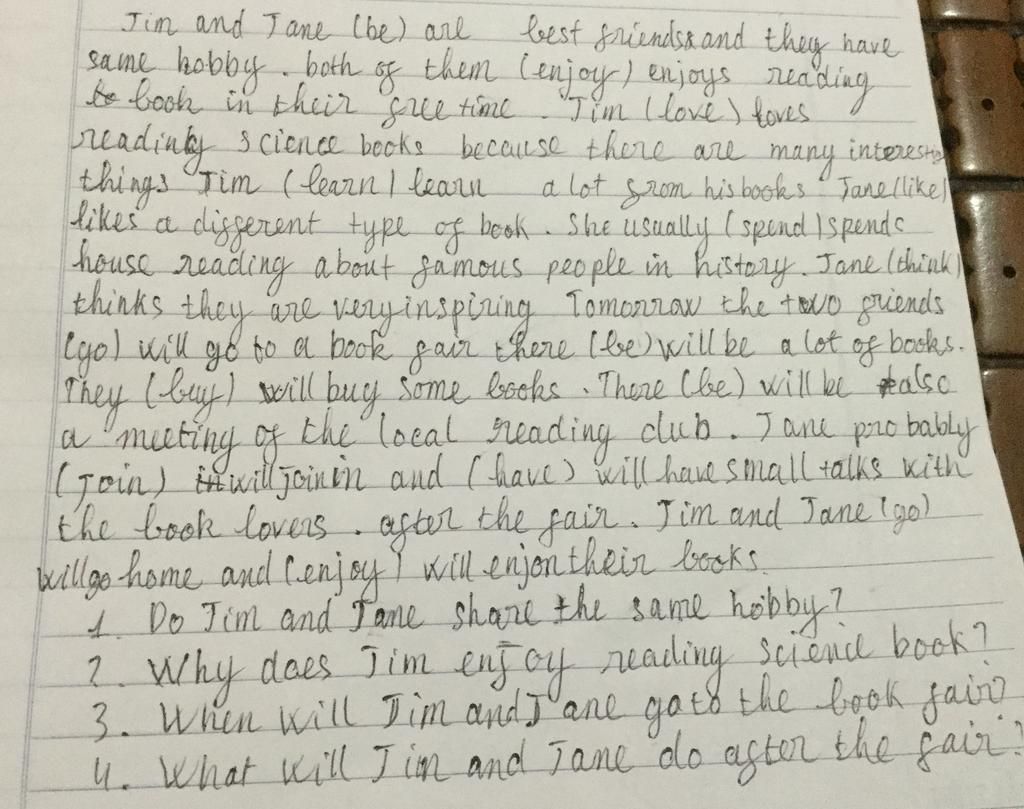 Jim and Jane (be) are best friends and they have
same hobby. both of them (enjoy) enjoys reading
book in their free time. Jim (love) loves
reading science books because there are many interesting
things Jim (learn) learn a lot from his books Jane (like)
likes a different type of book. She usually (spend) spends
house reading about famous people in history. Jane (think)
thinks they are very inspiring Tomorrow the two friends
(go) will go to a book fair there (be) will be a lot of books.
They (buy) will buy some books. There (be) will be also
a meeting of the local reading club. Jane probably
(join) will join in and (have) will have small talks with
the book lovers. after the fair. Jim and Jane (go)
will go home and (enjoy) will enjon their books.
1. Do Jim and Jane share the same hobby?
2. Why does Jim enjoy reading science book?
3. When will Jim and Jane go to the book fair?
4. What will Jim and Jane do after the fair?